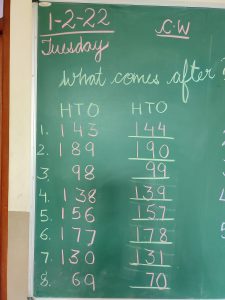 1-2-22 C.W
Tuesday
What comes after
HTO HTO
1. 143 144
2. 189 190
3. 98 99
4. 138 139
5. 156 157
6. 177 178
7. 130 131
8. 69 70